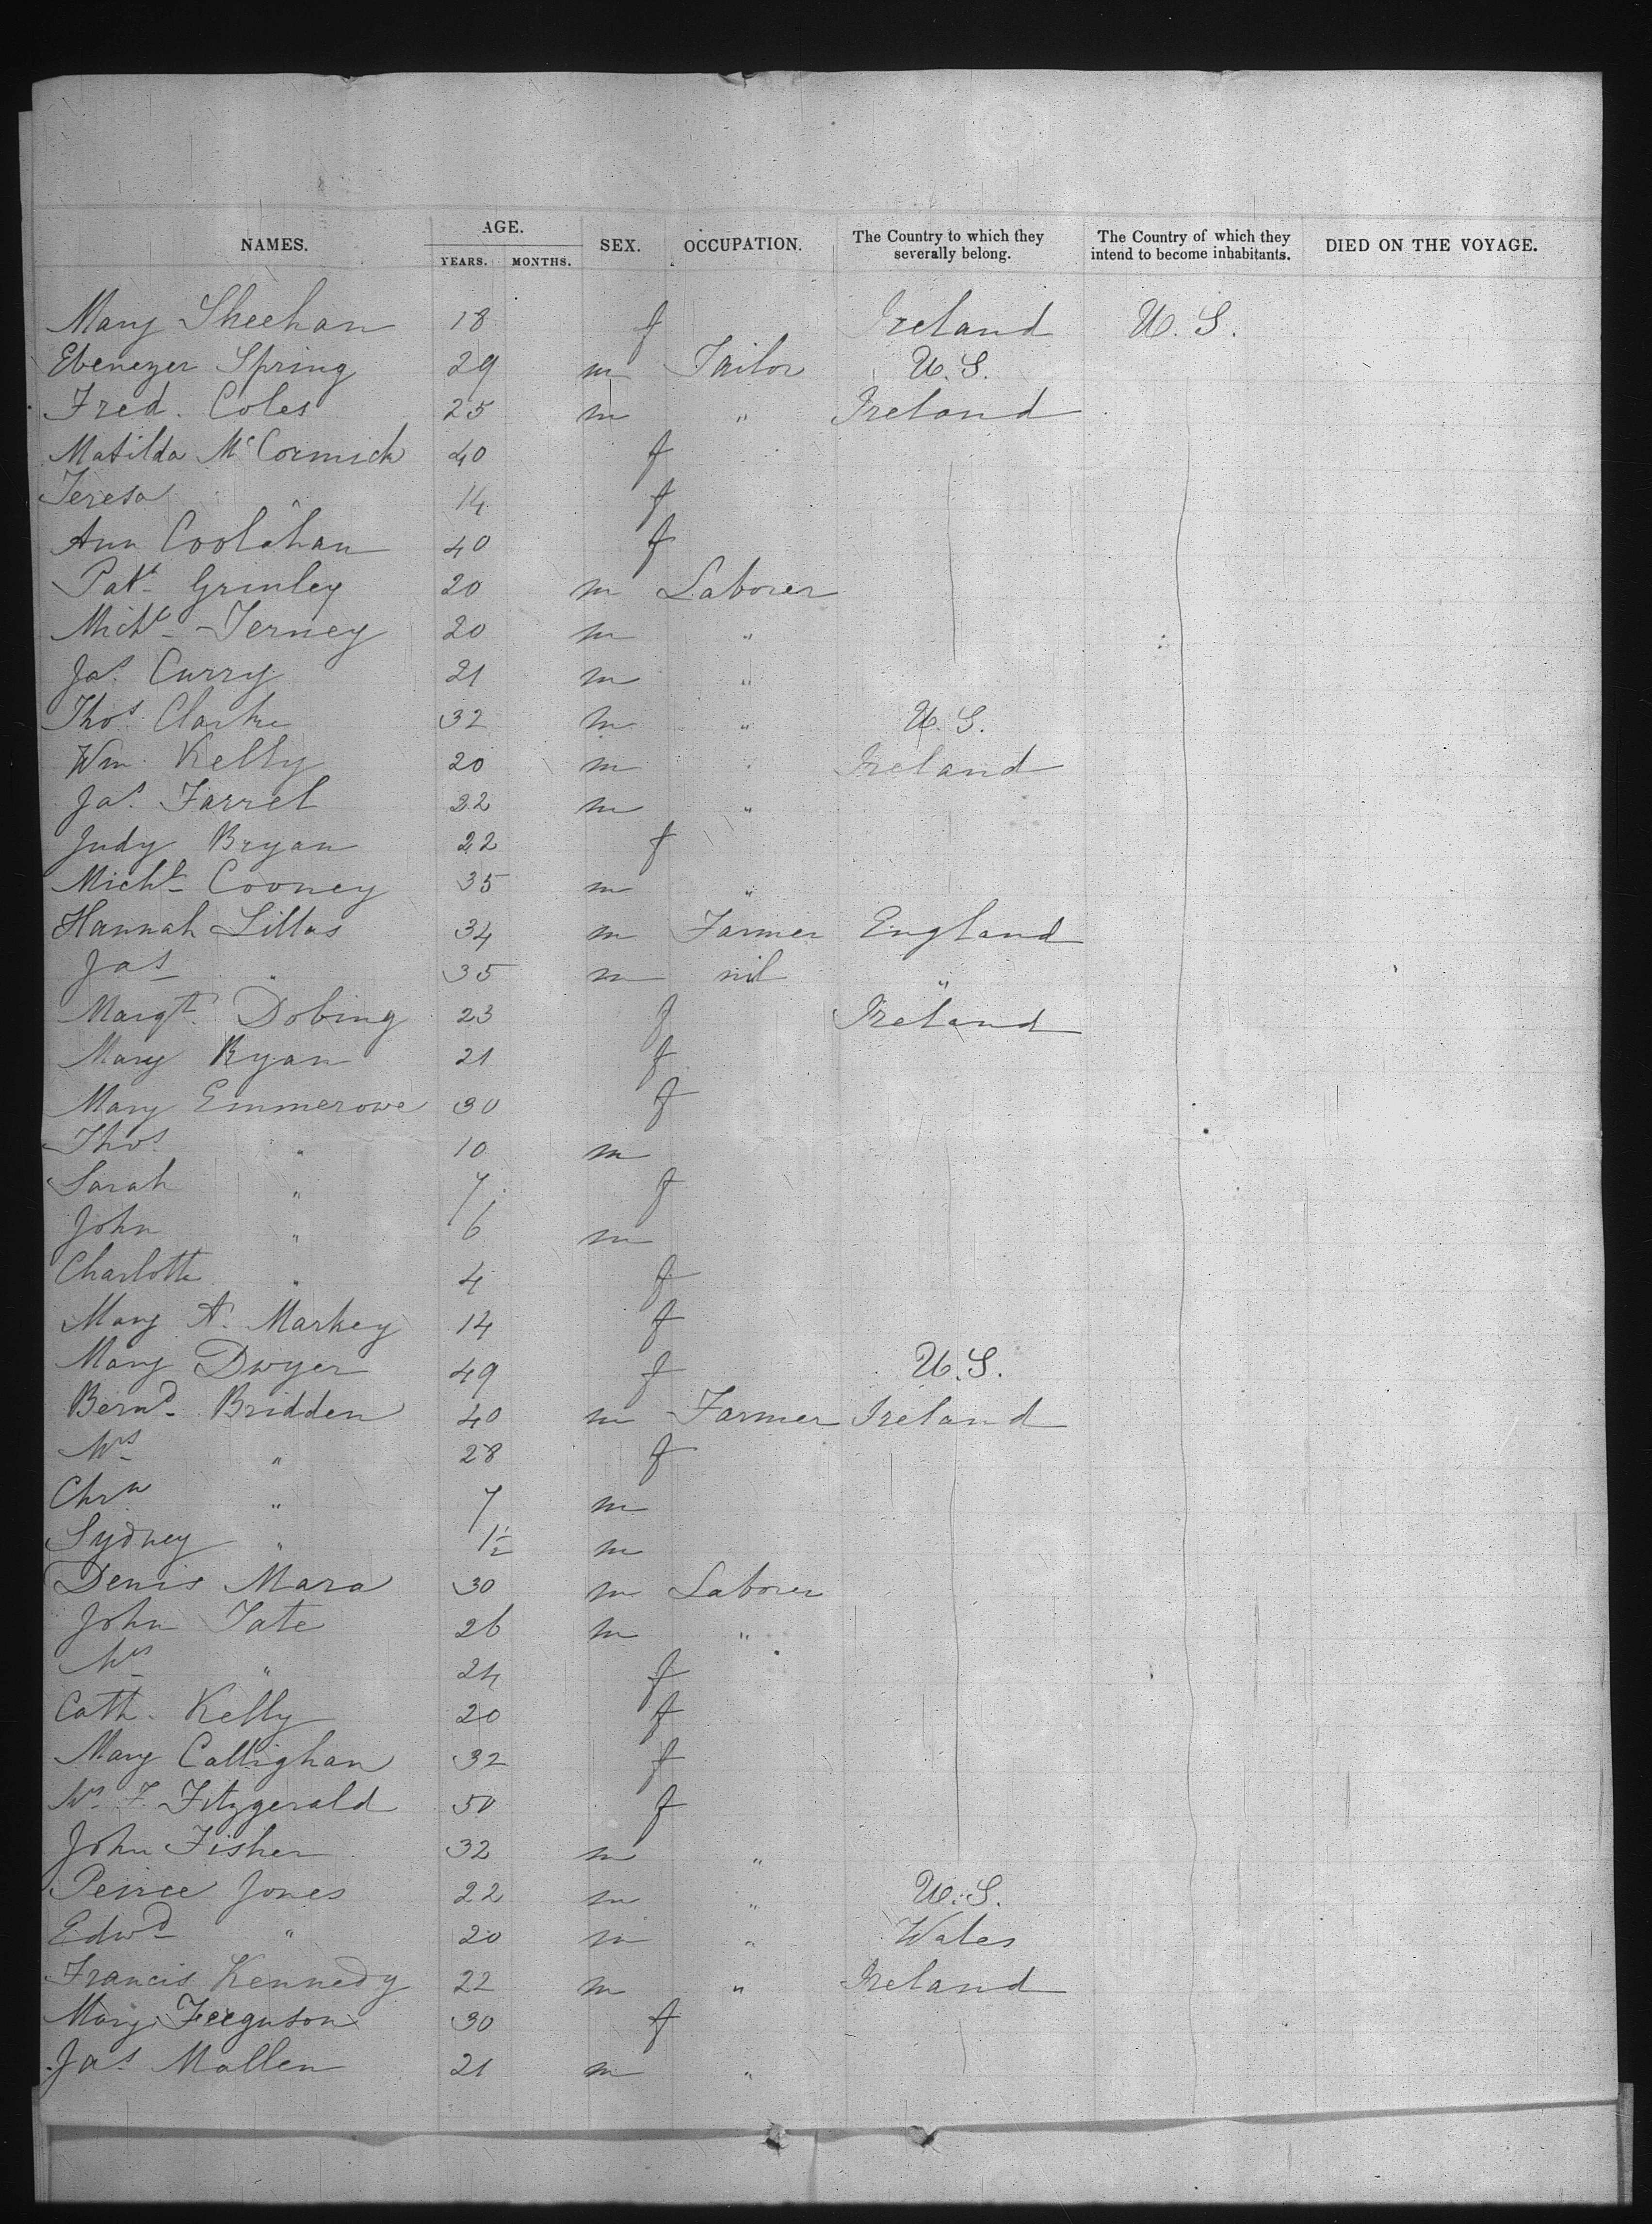 NAMES. AGE. YEARS. MONTHS. SEX. OCCUPATION. The Country to which they severally belong. The Country of which they intend to become inhabitants. DIED ON THE VOYAGE.
Mary Sheehan 18 f Ireland U.S.
Ebenezer Spring 29 m Tailor U.S.
Fred. Coles 25 m " Ireland
Matilda McCormick 40 f
Teresa " 14 f
Ann Coolahan 40 f
Patk Grinley 20 m Laborer
Michl Terney 20 m "
Jas Curry 21 m "
Thos Clarke 32 m " U.S.
Wm. Kelly 20 m " Ireland
Jas. Farrel 22 m "
Judy Bryan 22 f
Michl Cooney 35 m "
Hannah Lillas 34 m Farmer England
Jas " 35 m nil "
Margt Dobing 23 f Ireland
Mary Ryan 21 f
Mary Emmerowe 30 f
Thos " 10 m
Sarah " 7 f
John " 6 m
Charlotte " 4 f
Mary A. Markey 14 f
Mary Dwyer 49 f U.S.
Bernd Bridden 40 m Farmer Ireland
Mrs " 28 f
Chrn " 7 m
Sydney " 1½ m
Denis Mara 30 m Laborer
John Tate 26 m "
Mrs " 24 f
Cath. Kelly 20 f
Mary Callighan 32 f
Mrs F. Fitzgerald 50 f
John Fisher 32 m "
Peirce Jones 22 m " U.S.
Edwd " 20 m " Wales
Francis Kennedy 22 m " Ireland
Mary Ferguson 30 f
Jas Mallen 21 m "